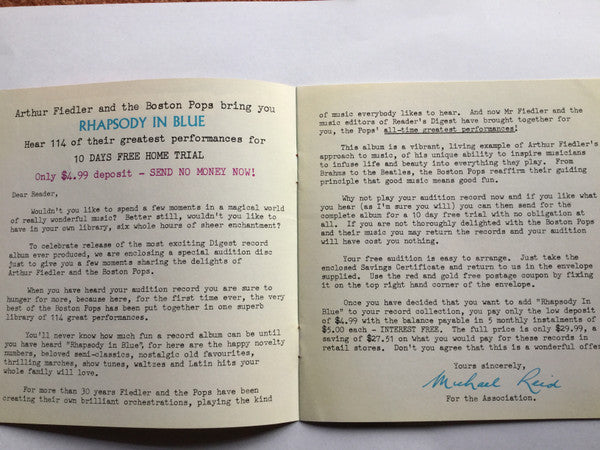 Arthur Fiedler and the Boston Pops bring you
RHAPSODY IN BLUE
Hear 114 of their greatest performances for
10 DAYS FREE HOME TRIAL
Only $4.99 deposit - SEND NO MONEY NOW!
Dear Reader,
Wouldn't you like to spend a few moments in a magical world
of really wonderful music? Better still, wouldn't you like to
have in your own library, six whole hours of sheer enchantment?
To celebrate release of the most exciting Digest record
album ever produced, we are enclosing a special audition disc
just to give you a few moments sharing the delights of
Arthur Fiedler and the Boston Pops.
When you have heard your audition record you are sure to
hunger for more, because here, for the first time ever, the very
best of the Boston Pops has been put together in one superb
library of 114 great performances.
You'll never know how much fun a record album can be until
you have heard "Rhapsody in Blue", for here are the happy novelty
numbers, beloved semi-classics, nostalgic old favourites,
thrilling marches, show tunes, waltzes and Latin hits your
whole family will love.
For more than 30 years Fiedler and the Pops have been
creating their own brilliant orchestrations, playing the kind
of music everybody likes to hear. And now Mr Fiedler and the
music editors of Reader's Digest have brought together for
you, the Pops' all-time greatest performances!
This album is a vibrant, living example of Arthur Fiedler's
approach to music, of his unique ability to inspire musicians
to infuse life and beauty into everything they play. From
Brahms to the Beatles, the Boston Pops reaffirm their guiding
principle that good music means good fun.
Why not play your audition record now and if you like what
you hear (as I'm sure you will) you can then send for the
complete album for a 10 day free trial with no obligation at
all. If you are not thoroughly delighted with the Boston Pops
and their music you may return the records and your audition
will have cost you nothing.
Your free audition is easy to arrange. Just take the
enclosed Savings Certificate and return to us in the envelope
supplied. Use the red and gold free postage coupon by fixing
it on the top right hand corner of the envelope.
Once you have decided that you want to add "Rhapsody In
Blue" to your record collection, you pay only the low deposit
of $4.99 with the balance payable in 5 monthly instalments of
$5.00 each - INTEREST FREE. The full price is only $29.99, a
saving of $27.51 on what you would pay for these records in
retail stores. Don't you agree that this is a wonderful offer
Yours sincerely,
Michael Reid
For the Association.